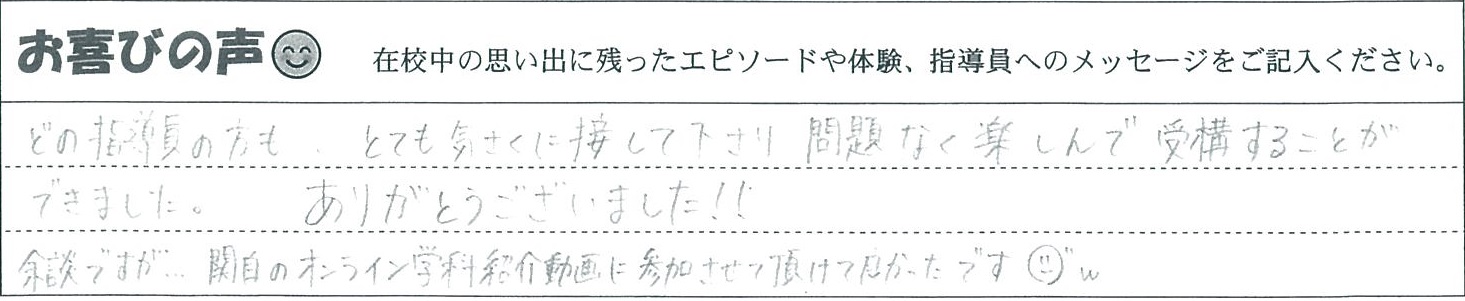 お喜びの声
在校中の思い出に残ったエピソードや体験、指導員へのメッセージをご記入ください。
どの指導員の方も、とても気さくに接して下さり 問題なく楽しんで受構することが
できました。 ありがとうございました!!
余談ですが… 関自のオンライン学科紹介動画に参加させて頂けて良かったです w